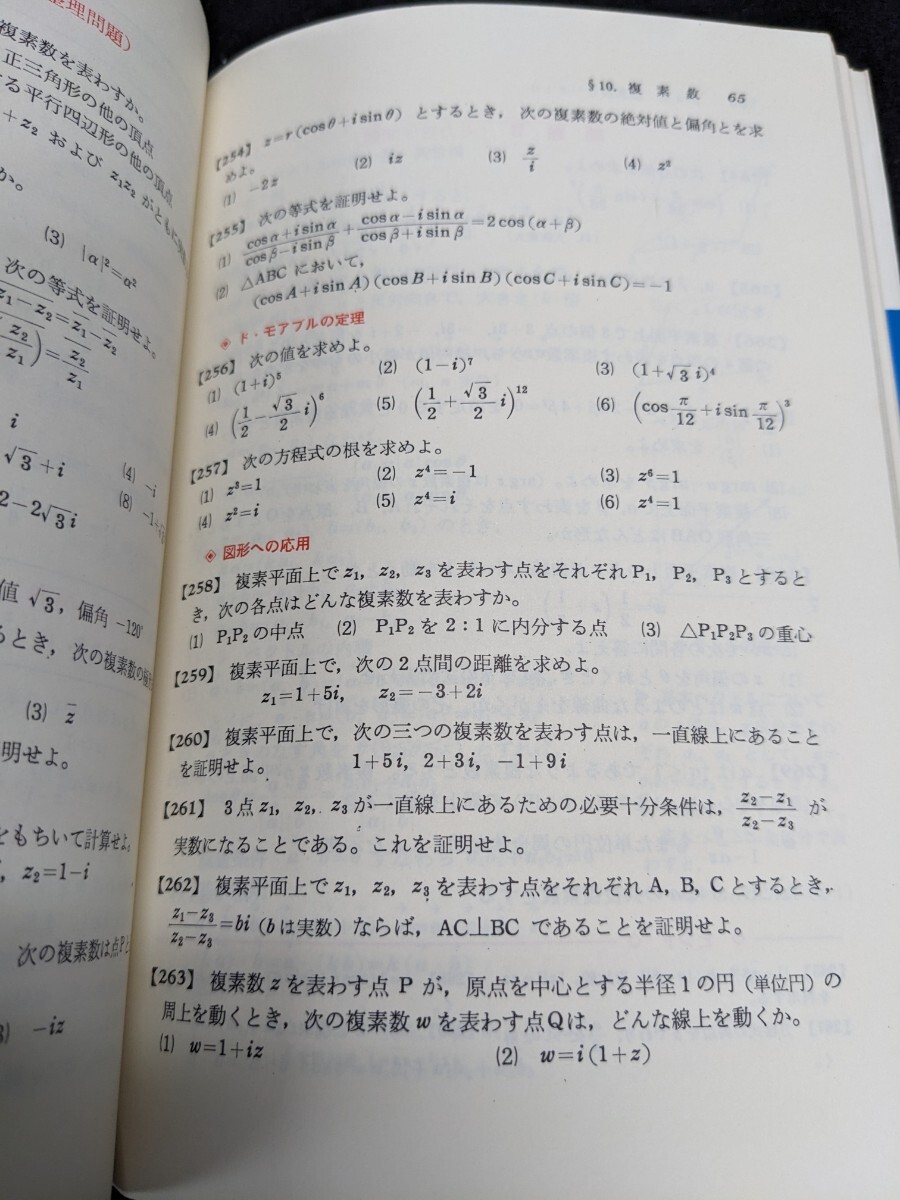 整理問題)
複素数を表わすか。
正三角形の他の頂点
る平行四辺形の他の頂点
+z₂ および z₁z₂ がともに
か。
(3) |α|²=α²
次の等式を証明せよ。
z₁-z₂=z₁-z₂
(z₂/z₁)=z₂/z₁
i
√3+i (4) -i
2-2√3i (8)
値 √3, 偏角 -120°
るとき, 次の複素数の
(3) z̄
明せよ。
ともちいて計算せよ。
, z₂=1-i
次の複素数は点P
-iz
§10. 複素数 65
【254】 z=r(cosθ+i sinθ) とするとき, 次の複素数の絶対値と偏角とを求
めよ。
(1) -2z (2) iz (3) z/i (4) z²
【255】 次の等式を証明せよ。
(1) (cosα+i sinα)/(cosβ-i sinβ)+(cosα-i sinα)/(cosβ+i sinβ)=2cos(α+β)
(2) △ABC において,
(cosA+i sinA)(cosB+i sinB)(cosC+i sinC)=-1
◈ ド・モアブルの定理
【256】 次の値を求めよ。
(1) (1+i)⁵ (2) (1-i)⁷ (3) (1+√3i)⁴
(4) (1/2-√3/2 i)⁶ (5) (1/2+√3/2 i)¹² (6) (cos π/12+i sin π/12)³
【257】 次の方程式の根を求めよ。
(1) z³=1 (2) z⁴=-1 (3) z⁶=1
(4) z²=i (5) z⁴=i (6) z⁴=1
◈ 図形への応用
【258】 複素平面上で z₁, z₂, z₃ を表わす点をそれぞれ P₁, P₂, P₃ とすると
き, 次の各点はどんな複素数を表わすか。
(1) P₁P₂ の中点 (2) P₁P₂ を 2:1 に内分する点 (3) △P₁P₂P₃ の重心
【259】 複素平面上で, 次の2点間の距離を求めよ。
z₁=1+5i, z₂=-3+2i
【260】 複素平面上で, 次の三つの複素数を表わす点は, 一直線上にあること
を証明せよ。 1+5i, 2+3i, -1+9i
【261】 3点 z₁, z₂, z₃ が一直線上にあるための必要十分条件は, (z₂-z₁)/(z₂-z₃) が
実数になることである。これを証明せよ。
【262】 複素平面上で z₁, z₂, z₃ を表わす点をそれぞれ A, B, C とするとき,
(z₁-z₃)/(z₂-z₃)=bi (b は実数) ならば, AC⊥BC であることを証明せよ。
【263】 複素数 z を表わす点 P が, 原点を中心とする半径1の円 (単位円) の
周上を動くとき, 次の複素数 w を表わす点Qは, どんな線上を動くか。
(1) w=1+iz (2) w=i(1+z)